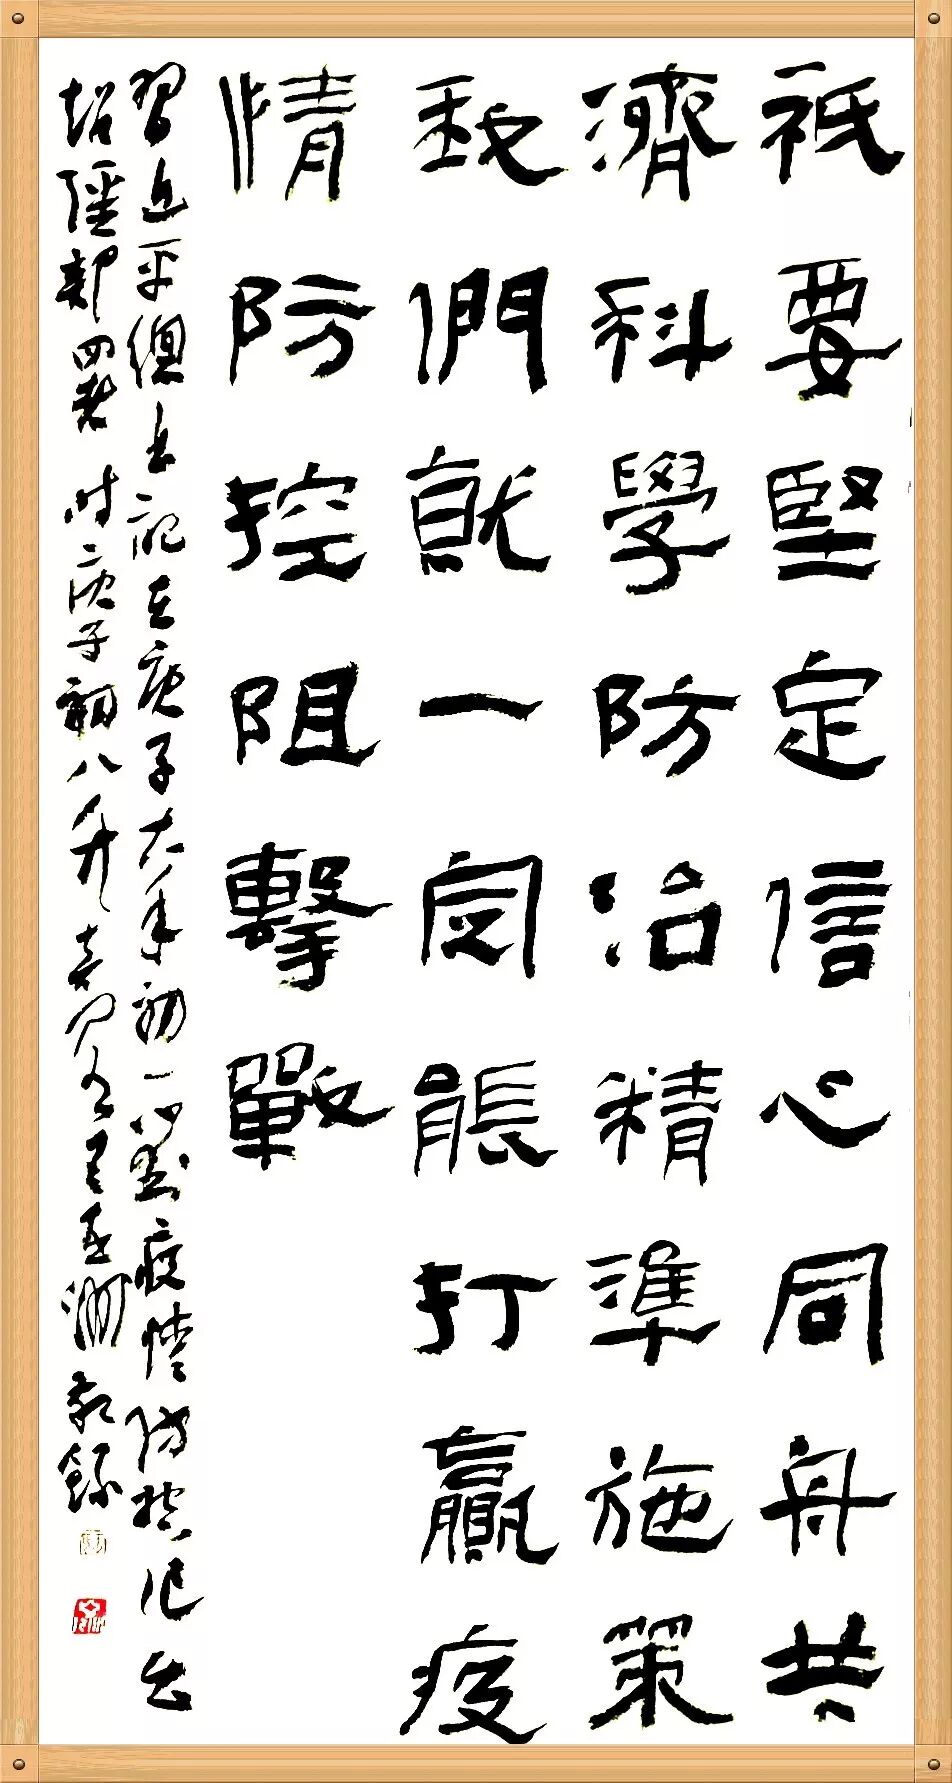 祇要堅定信心同舟共
濟科學防治精準施策
我們就一定能打贏疫
情防控阻擊戰
習近平總書記在庚子大年初一對疫情防控作出
时庚子初八 敬錄